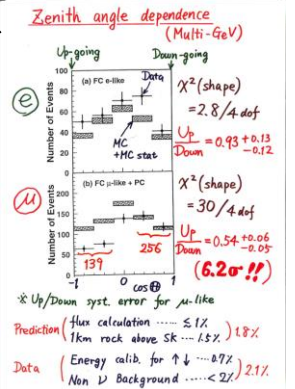 Zenith angle dependence
(Multi-GeV)
Up-going
Down-going
(a) FC e-like
Data
MC
+MC stat
Number of Events
100
80
60
40
20
0
e
χ² (shape)
= 2.8 / 4 dof
Up/Down = 0.93 +0.13 -0.12
(b) FC μ-like + PC
Number of Events
200
150
100
50
0
-1
0
1
cosΘ
139
256
μ
χ² (shape)
= 30 / 4 dof
Up/Down = 0.54 +0.06 -0.05
(6.2σ !!)
※ Up/Down syst. error for μ-like
Prediction ( flux calculation ...... ≲ 1% 1km rock above SK .... 1.5% ) 1.8%
Data ( Energy calib. for ↑ ↓ .... 0.7% Non ν Background ...... < 2% ) 2.1%